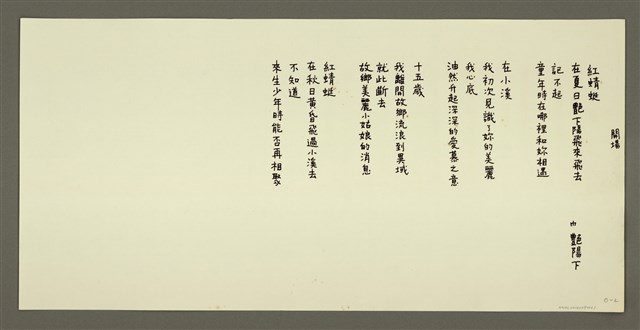 開場
紅蜻蜓
在夏日艷下陽飛來飛去
記不起
童年時在哪裡和妳相遇
在小溪
我初次見識了妳的美麗
我心底
油然升起深深的愛慕之意
十五歲
我離開故鄉流浪到異域
就此斷去
故鄉美麗小姑娘的消息
紅蜻蜓
在秋日黃昏飛過小溪去
不知道
來生少年時能否再相聚
艷陽下